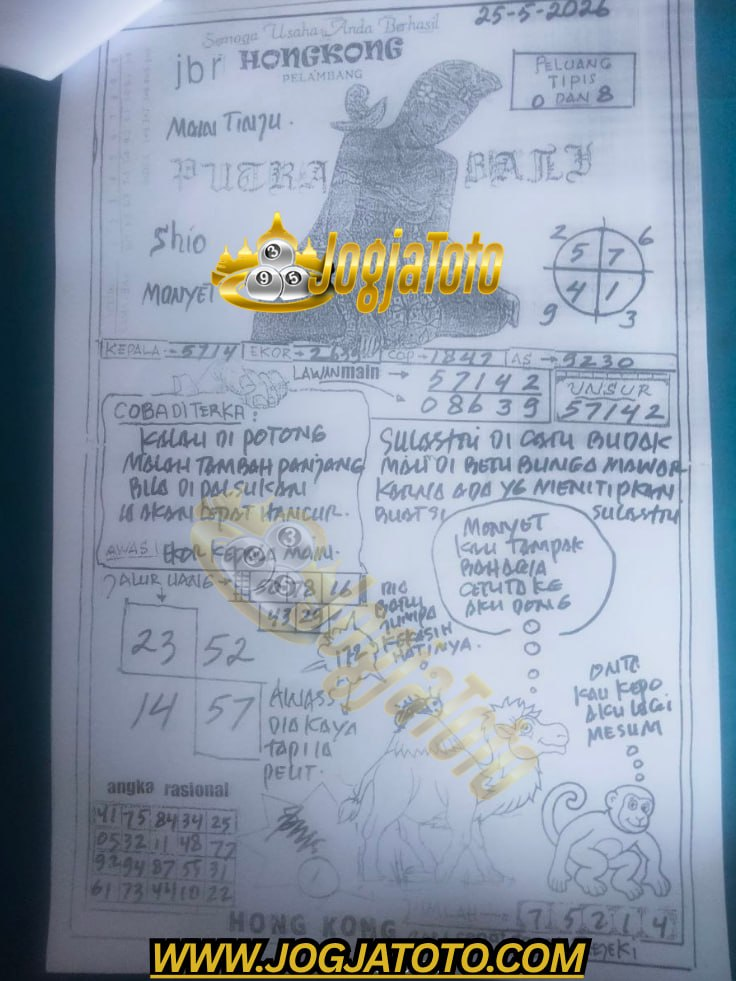 25-5-2026
Semoga Usaha Anda Berhasil
jbr HONGKONG
PELAMBANG
PELUANG
TIPIS
0 DAN 8
MAIN TINJU.
PUTRA BALI
Shio
MONYET
JogjaToto
3
9 5
2 6
5 7
4 1
9 3
KEPALA → 5714 EKOR → 2639 COP → 1847 AS → 9230
LAWAN main → 57142
08639
UNSUR
57142
COBA DITERKA:
KALAU DI POTONG
MALAH TAMBAH PANJANG
BILA DI PALSUKAN
IA AKAN CEPAT HANCUR.
AWAS! EKOR KEPALA MAIN.
SULASTRI DI CATU BUDAK
MAU DI BERI BUNGA MAWAR
KARNA ADA YG MENITIPKAN
BUAT SI SULASTRI
MONYET
KAU TAMPAK
BAHAGIA
CERITA KE
AKU DONG
JALUR UANG → 78 16
43 29
DIA
BARU
JUMPA
KEKASIH
HATINYA.
23 52
14 57
AWASS
DIA KAYA
TAPI IA
PELIT.
ONTA
KAU KEPO
AKU LAGI
MESUM
JogjaToto
angka rasional
41 75 84 34 25
05 32 11 48 77
92 94 87 55 31
61 73 44 10 22
7 5 2 1 4
HONG KONG
WWW.JOGJATOTO.COM